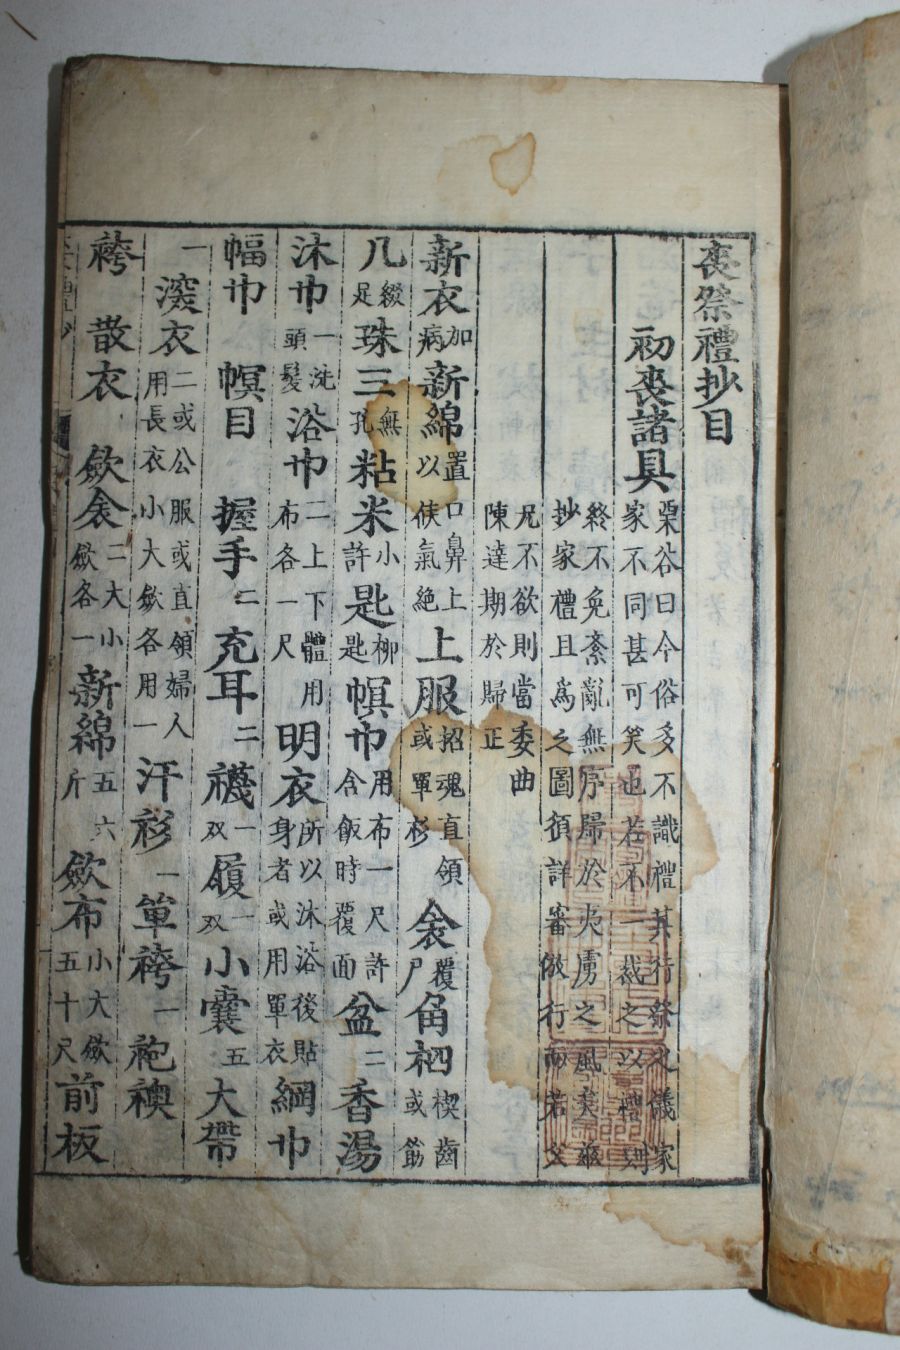 喪祭禮抄目
初喪諸具 栗谷曰今俗多不識禮其行祭之儀家
家不同甚可笑也若不一裁之以禮則
終不免紊亂無序歸於夷虜之風矣玆
抄家禮且爲之圖須詳審倣行而若父
兄不欲則當委曲
陳達期於歸正
新衣加病 新綿置口鼻上以候氣絶 上服招魂直領或單衫 衾覆尸 角柶楔齒或筯
几綴足 珠三無孔 粘米小許 匙柳匙 幎巾用布一尺許含飯時覆面 盆二 香湯
沐巾一洗頭髮 浴巾二上下體用布各一尺 明衣所以沐浴後貼身者或用單衣 網巾
幅巾 幎目 握手二 充耳二 襪一双 履一双 小囊五 大帶
一 深衣二或公服或直領婦人用長衣小大斂各用一 汗衫一 單袴一 袍襖
袴 散衣 斂衾二大小斂各一 新綿五六斤 斂布小大斂五十尺 前板